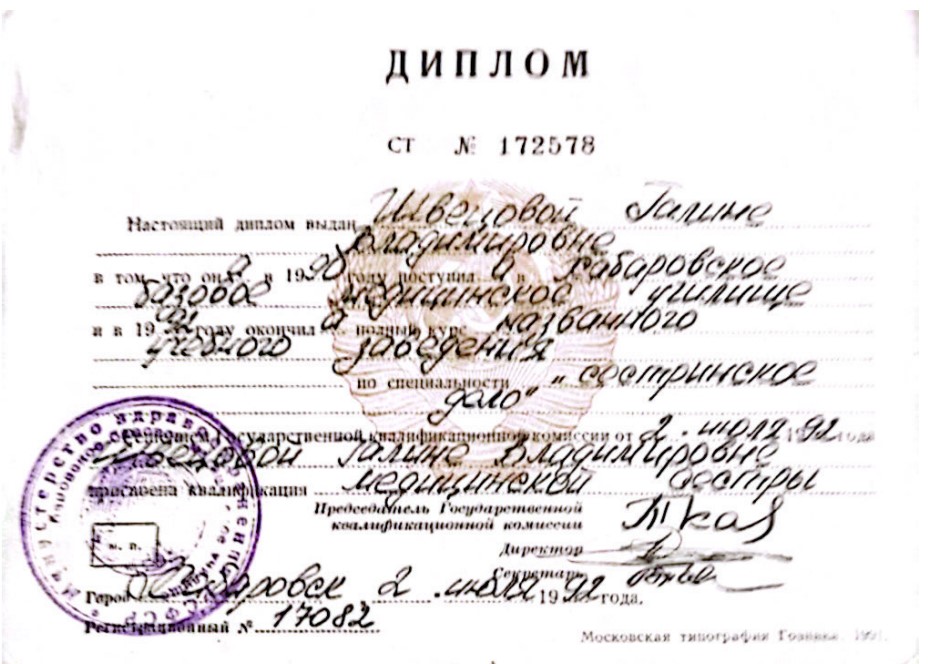 ДИПЛОМ
СТ № 172578
Настоящий диплом выдан Швецовой Галине
Владимировне
в том, что она в 1990 году поступила в Хабаровское
базовое медицинское училище
и в 1992 году окончила полный курс названного
учебного заведения
по специальности "сестринское
дело"
Решением Государственной квалификационной комиссии от 2 июля 1992 года
Швецовой Галине Владимировне
присвоена квалификация медицинской сестры
Председатель Государственной
квалификационной комиссии
Директор
Секретарь
М. П.
Город Хабаровск 2 июля 1992 года.
Регистрационный № 17082
Московская типография Гознака. 1991.